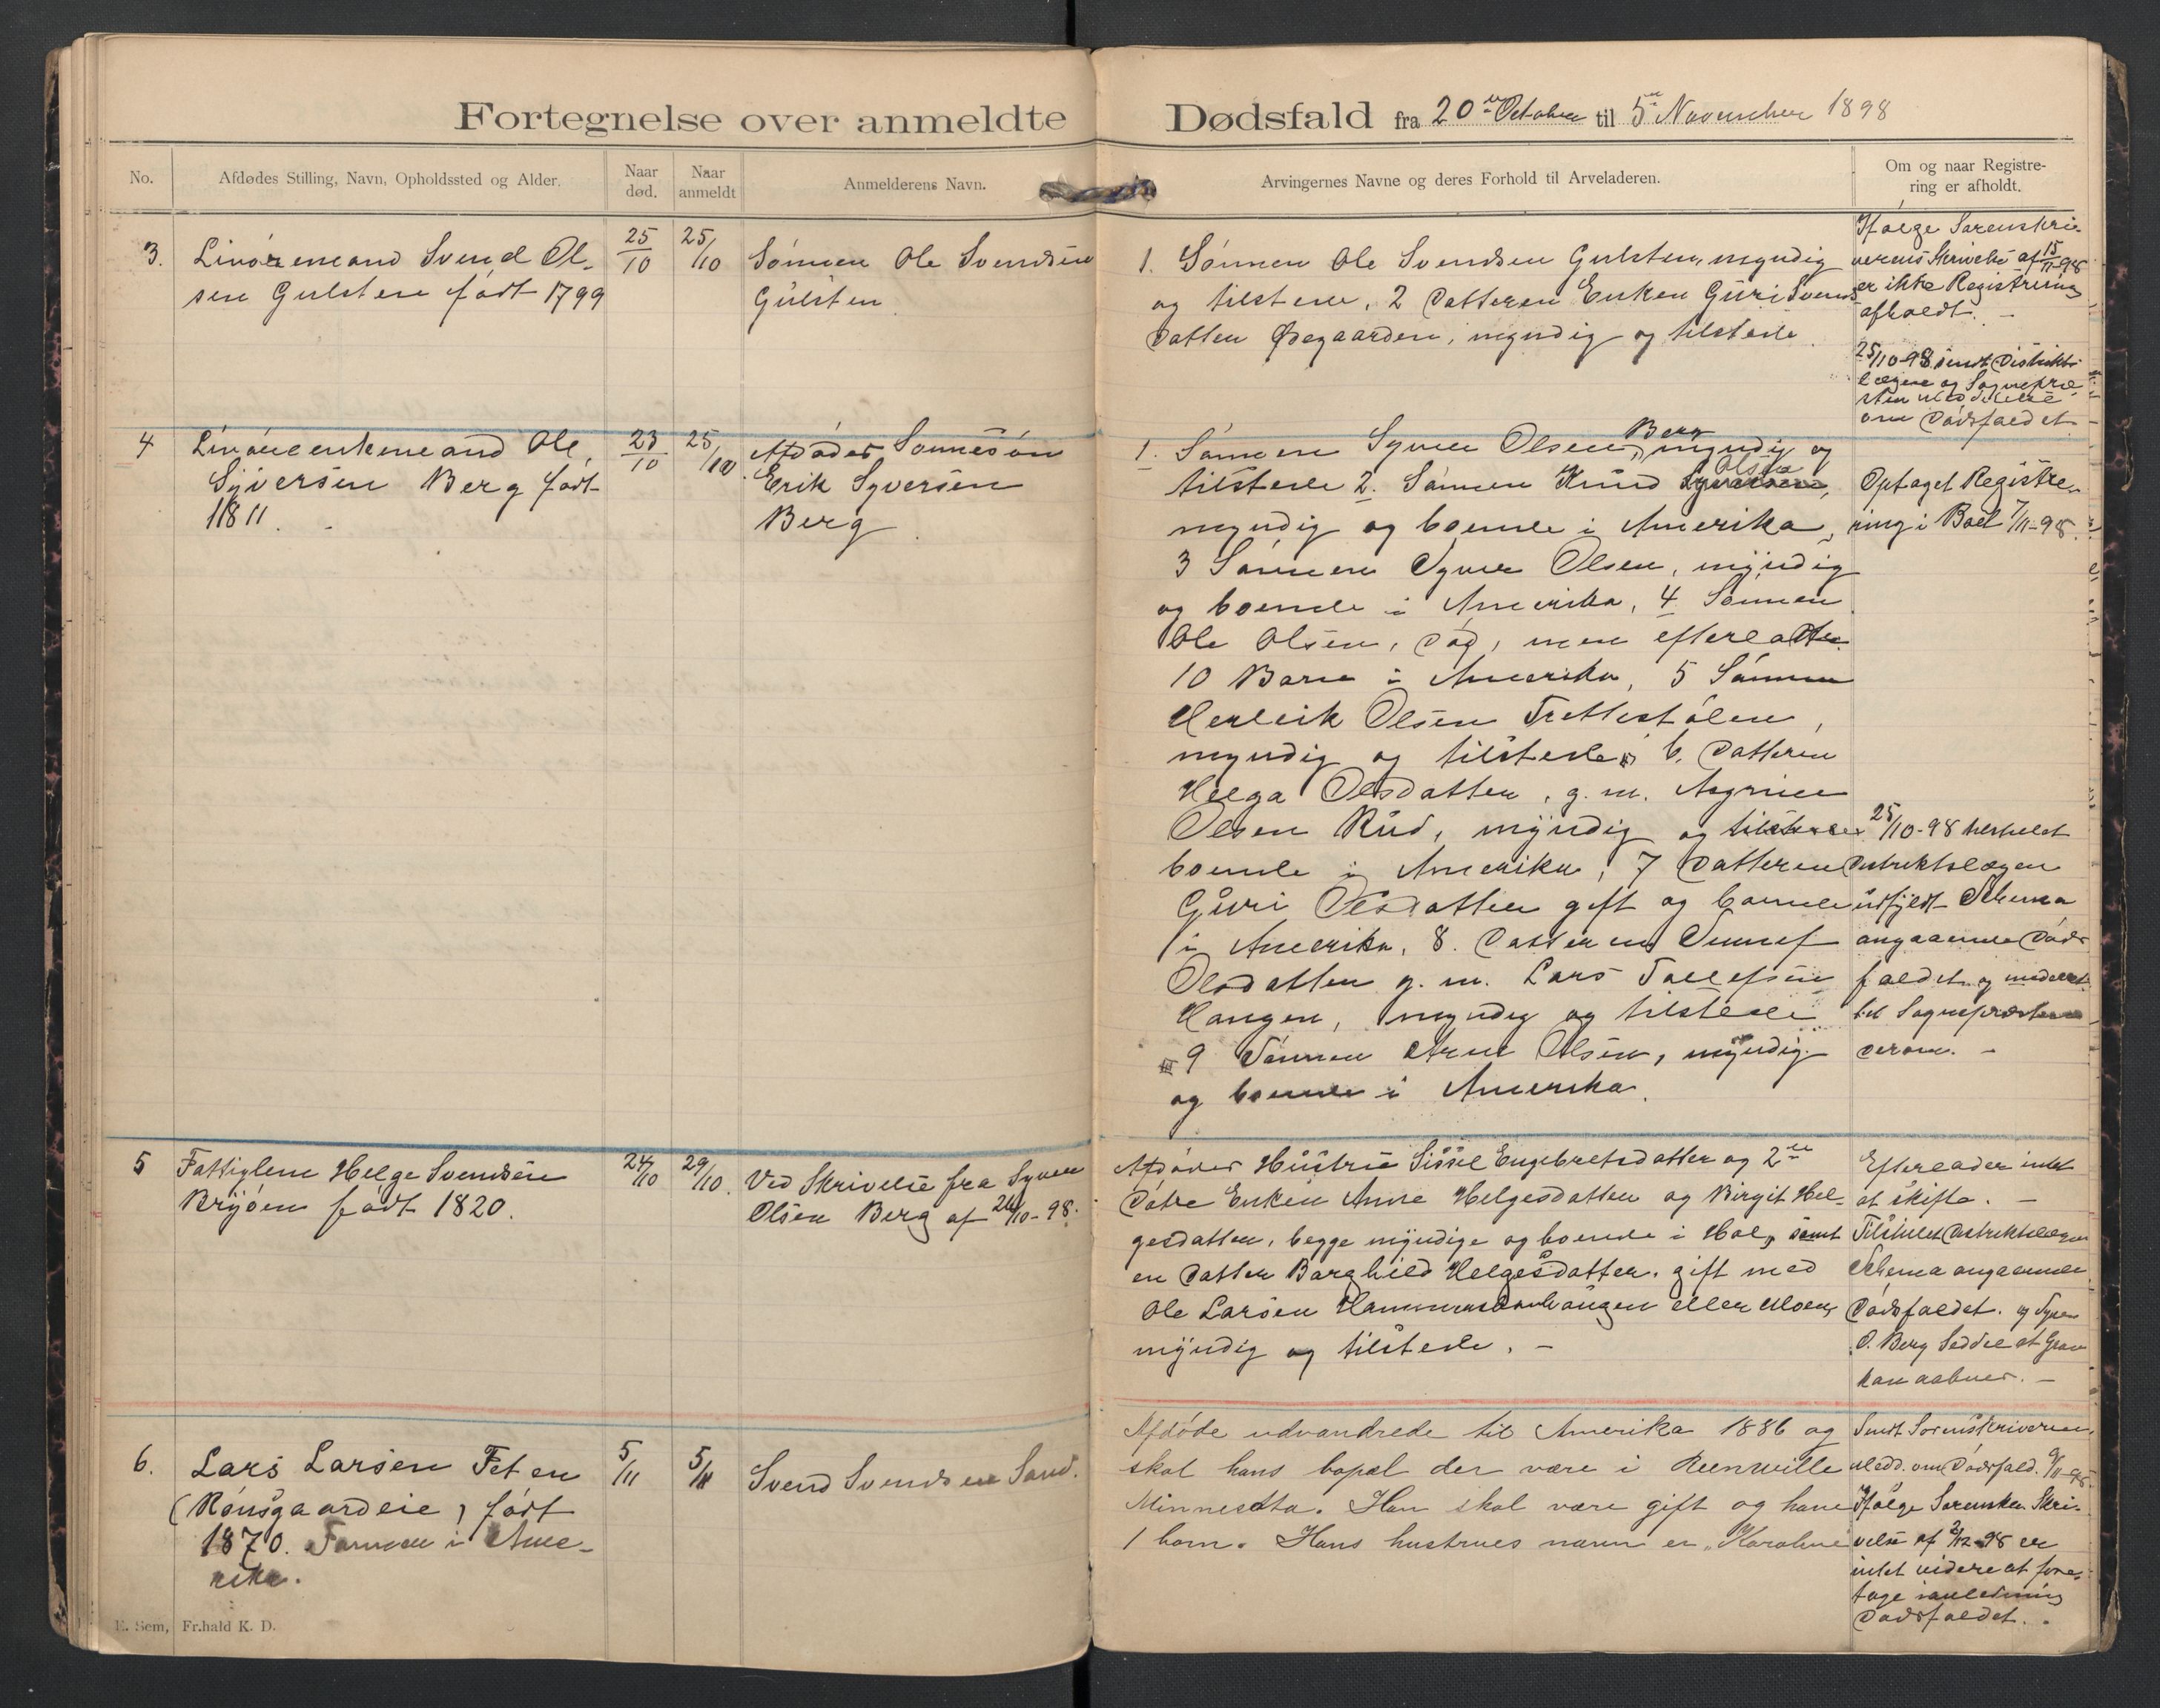 Fortegnelse over anmeldte Dødsfald fra 20de October til 5te November 1898
No.
Afdødes Stilling, Navn, Opholdssted og Alder.
Naar død.
Naar anmeldt
Anmelderens Navn.
Arvingernes Navne og deres Forhold til Arveladeren.
Om og naar Registrering er afholdt.
3.
Svend Ol-
sen Gulsten født 1799
25/10
25/10
Sønnen Ole Svendsen
Gulsten
1. Sønnen Ole Svendsen Gulsten, myndig
og tilstede, 2 Datteren Enken Guri Svends
datter Øegaarden, myndig og tilstede.
Ifølge Sorenskri-
verens Skrivelse af 15/11-98
er ikke Registrering
afholdt. -
25/10-98 sendt Distrikts-
lægen og Sognepræ-
sten meddelelse
om Dødsfaldet
4
Ole
Syversen Berg født
1811. -
23/10
25/10
Afdødes Sønnesøn
Erik Syversen
Berg
1. Sønnen Syver Olsen Berg, myndig og
tilstede 2. Sønnen Knud Syversen Olsen,
myndig og boende i Amerika,
3 Sønnen Syver Olsen, myndig
og boende i Amerika, 4 Sønnen
Ole Olsen, død, men efterladte
10 Børn i Amerika, 5 Sønnen
Herleik Olsen Trettestølen,
myndig og tilstede, 6. Datteren
Helga Olsdatter, g. m. Asgrim
Olsen Rud, myndig og tilstede
boende i Amerika, 7 Datteren
Guri Olsdatter gift og boende
i Amerika, 8. Datteren Sunnef
Olsdatter g. m. Lars Tollefsen
Haugen, myndig og tilstede
9 Sønnen Arne Olsen, myndig
og boende i Amerika.
Optaget Registre-
ring i Boet 7/11-98.
25/10-98 tilstillet
Distriktslægen
udfyldt Schema
angaaende Døds
faldet og meddelt
til Sognepræsten
derom. -
5
Fattiglem Helge Svendsen
Bryøen født 1820.
24/10
29/10.
Ved Skrivelse fra Syver
Olsen Berg af 26/10-98.
Afdødes Hustru Sissel Engebretsdatter og 2de
Døtre Enken Anne Helgesdatter og Birgit Hel-
gesdatter, begge myndige og boende i Hol, samt
en Datter Barghild Helgesdatter, gift med
Ole Larsen eller Moen,
myndig og tilstede. -
Efterlader intet
at skifte. -
Tilstillet Distriktslægen
Schema angaaende
Dødsfaldet. og Syver
O. Berg Seddel at Grav
kan aabnes. -
6.
Lars Larsen Feten
(Rønsgaardeie) født
1870. Farmer i Ame-
rika.
5/11
5/11
Svend Svendsen Sand.
Afdøde udvandrede til Amerika 1886 og
skal hans bopæl der være i Reenwille
Minnesotta. Han skal være gift og have
1 barn. Hans hustrues navn er "Karoline
Sendt Sorenskriveren
medd. om Dødsfald. 9/11-98.
Ifølge Sorenskr. Skri-
velse af 2/12-98 er
intet videre at fore-
tage i anledning
Dødsfaldet. .
E. Sem, Fr.hald K. D.